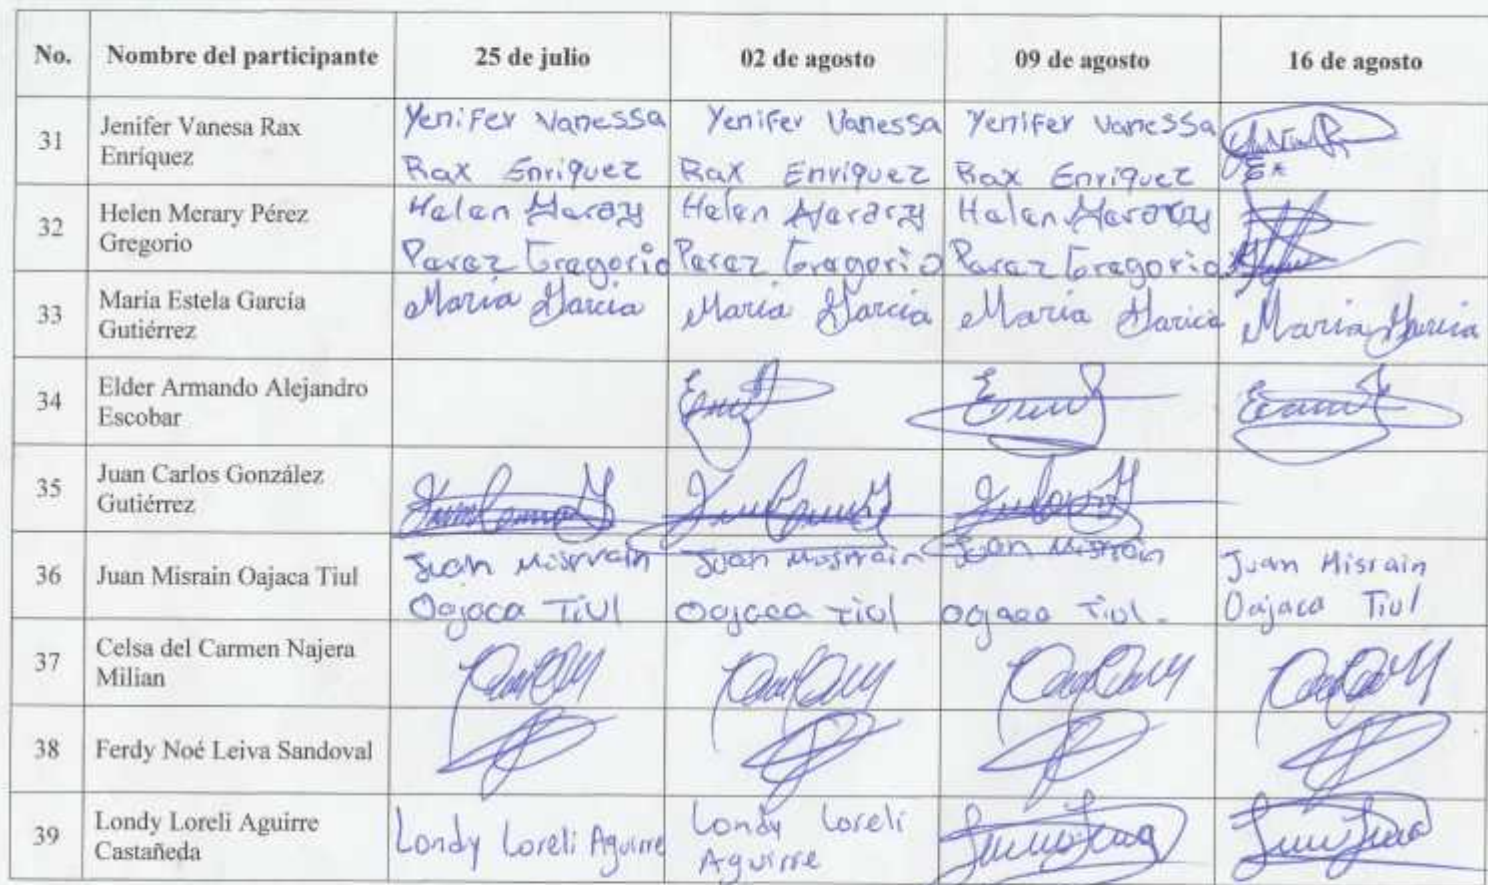 No. Nombre del participante 25 de julio 02 de agosto 09 de agosto 16 de agosto
31 Jenifer Vanesa Rax Enríquez
Yenifer Vanessa Yenifer Vanessa Yenifer Vanessa
Rax Enriquez Rax Enriquez Rax Enriquez
32 Helen Merary Pérez Gregorio
Helen Merary Helen Merary Helen Merary
Perez Gregorio Perez Gregorio Perez Gregorio
33 María Estela García Gutiérrez
Maria Garcia Maria Garcia Maria Garica Maria Garcia
34 Elder Armando Alejandro Escobar
35 Juan Carlos González Gutiérrez
36 Juan Misrain Oajaca Tiul
Juan Misrrain Juan Misrrain Juan Misrrain Juan Misrain
Oajaca Tiul Oajaca Tiul Oajaca Tiul. Oajaca Tiul
37 Celsa del Carmen Najera Milian
38 Ferdy Noé Leiva Sandoval
39 Londy Loreli Aguirre Castañeda
Londy Loreli Aguirre Londy Loreli
Aguirre